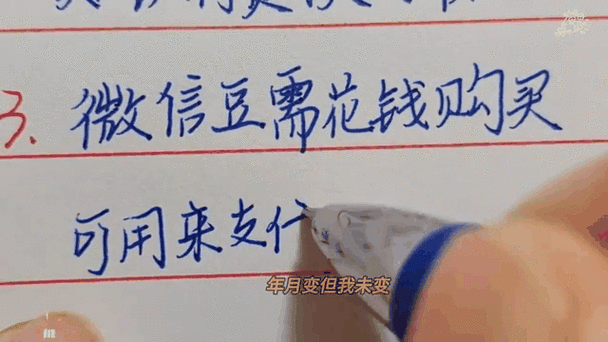 3. 微信豆需花钱购买
可用来支亻
年月变但我未变